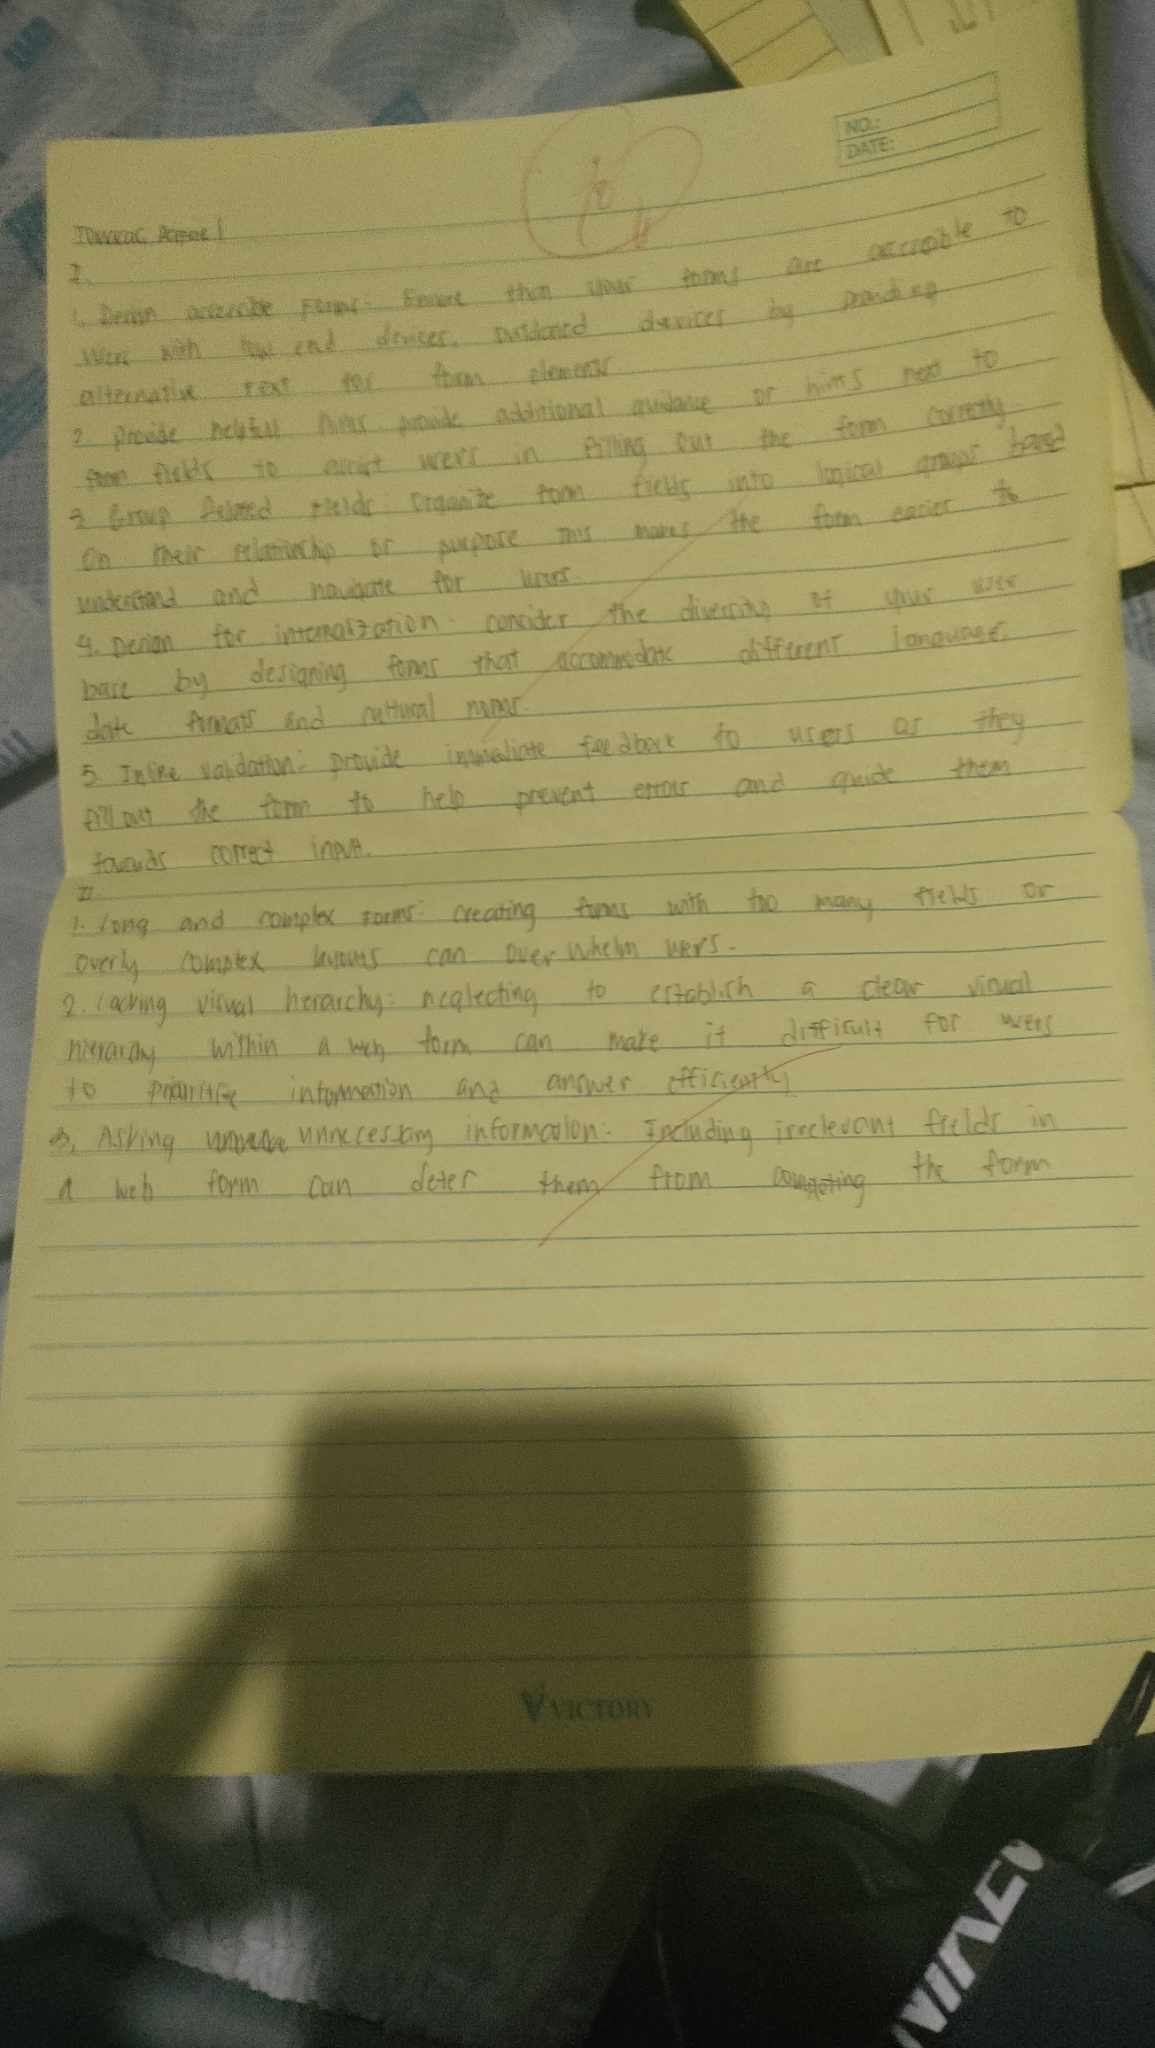 NO.:
DATE:
I.
1. Design accessible Forms: Ensure that your forms are accessible to
users with low end devices, outdated devices by providing
alternative text for form elements.
2. Provide helpfull hints: provide additional guidance or hints next to
form fields to assist users in filling out the form correctly.
3 Group Related Fields: Organize form fields into logical groups based
on their relationship or purpose this makes the form easier to
understand and navigate for users.
4. Design for internalization: consider the diversity of your user
base by designing forms that accommodate different language,
date formats and cultural norms.
5 Inline validation: provide immediate feedback to users as they
fill out the form to help prevent errors and guide them
towards correct input.
II.
1. Long and complex forms: creating forms with too many fields or
overly complex layouts can over whelm users.
2. lacking visual hierarchy: neglecting to establish a clear visual
hierarchy within a web form can make it difficult for users
to prioritize information and answer efficiently
3. Asking unnecessary information: Including irrelevant fields in
a web form can deter them from completing the form
VICTORY